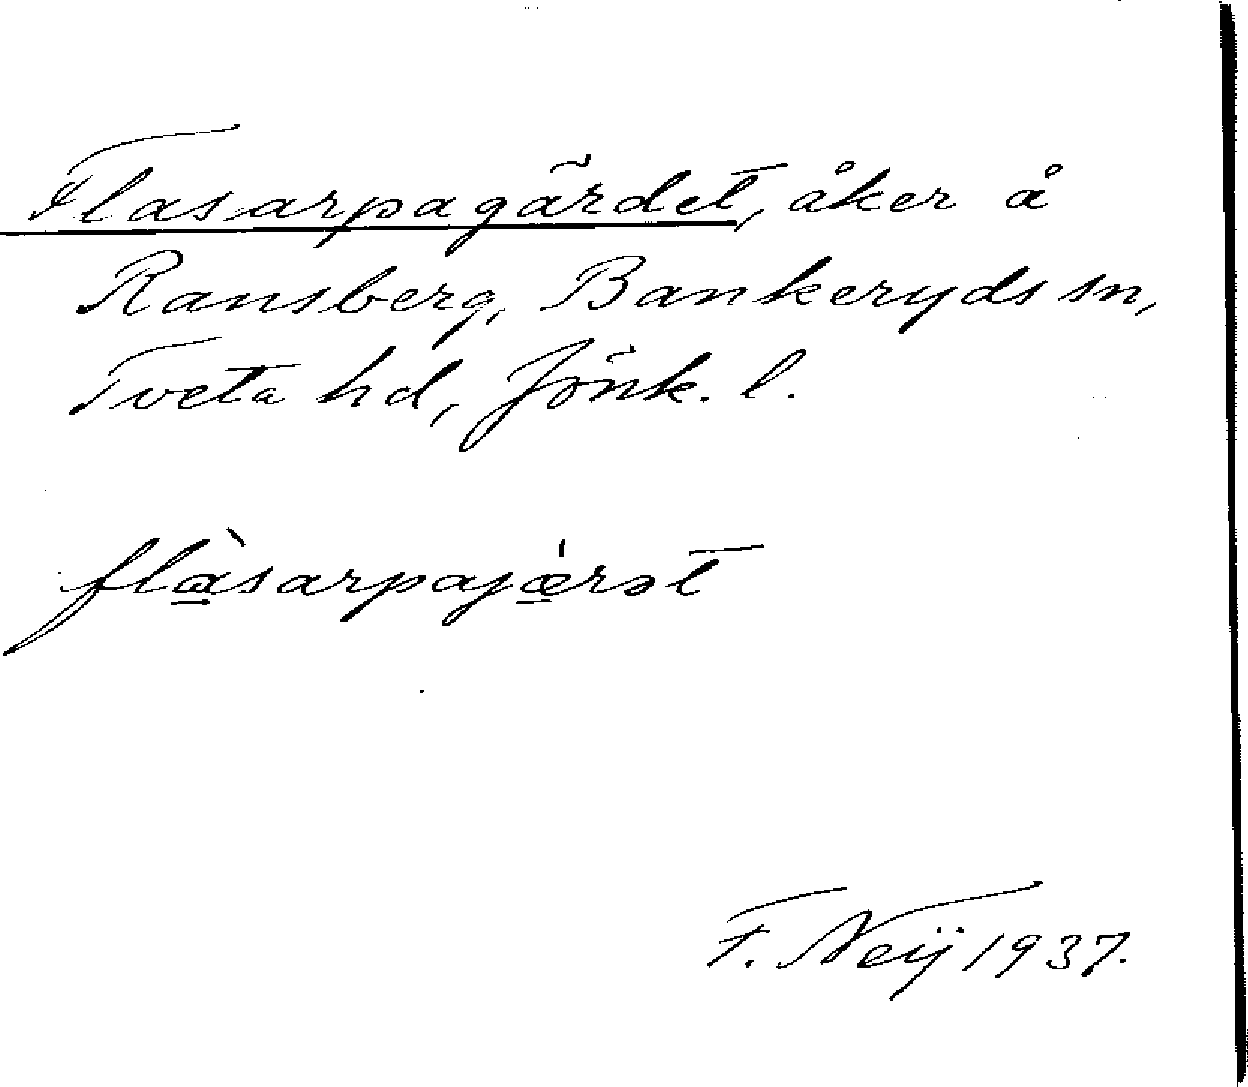 Flasarpagärdet, åker å
Ransberg, Bankeryds sn,
Tveta hd, Jönk. l.
flà̱sarpajǽ̱rət
F. Neij 1937.